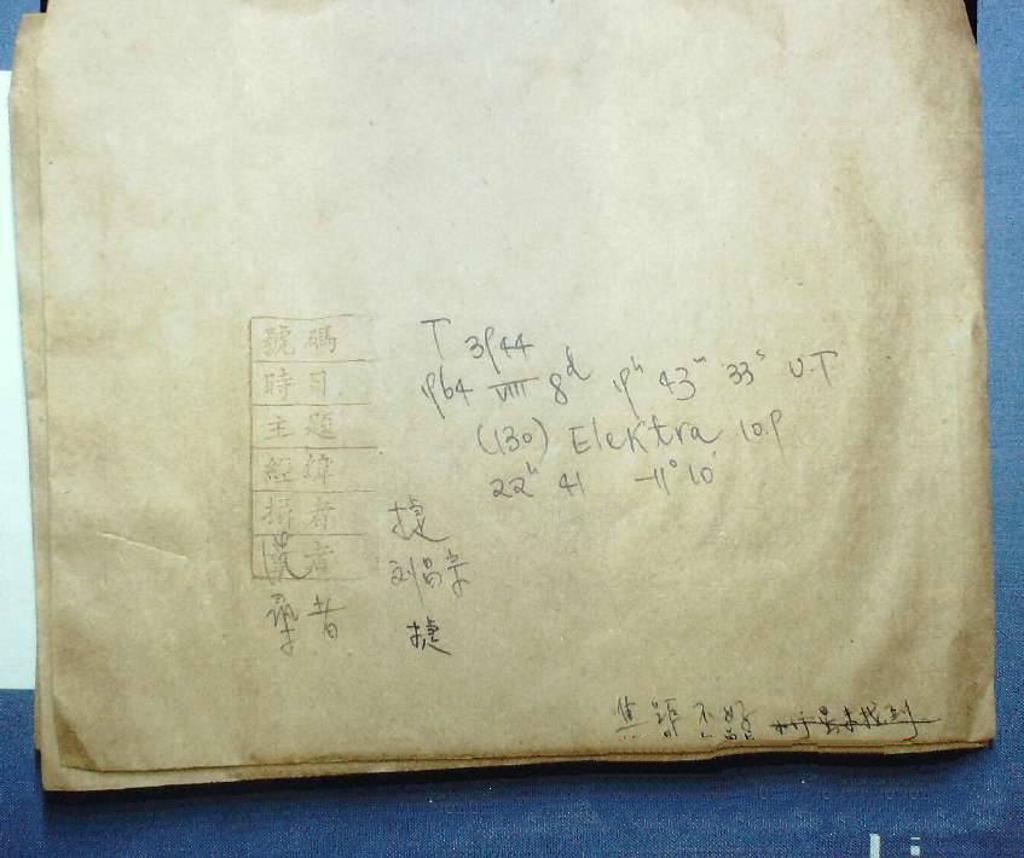 號碼 T 3944
時日 1964 VIII 8d 19h 43m 33s U.T
主題 (130) Elektra 10.9
經緯 22h 41 -11° 10'
攝者 捷
者 刘昌宗
者 捷
焦距不好